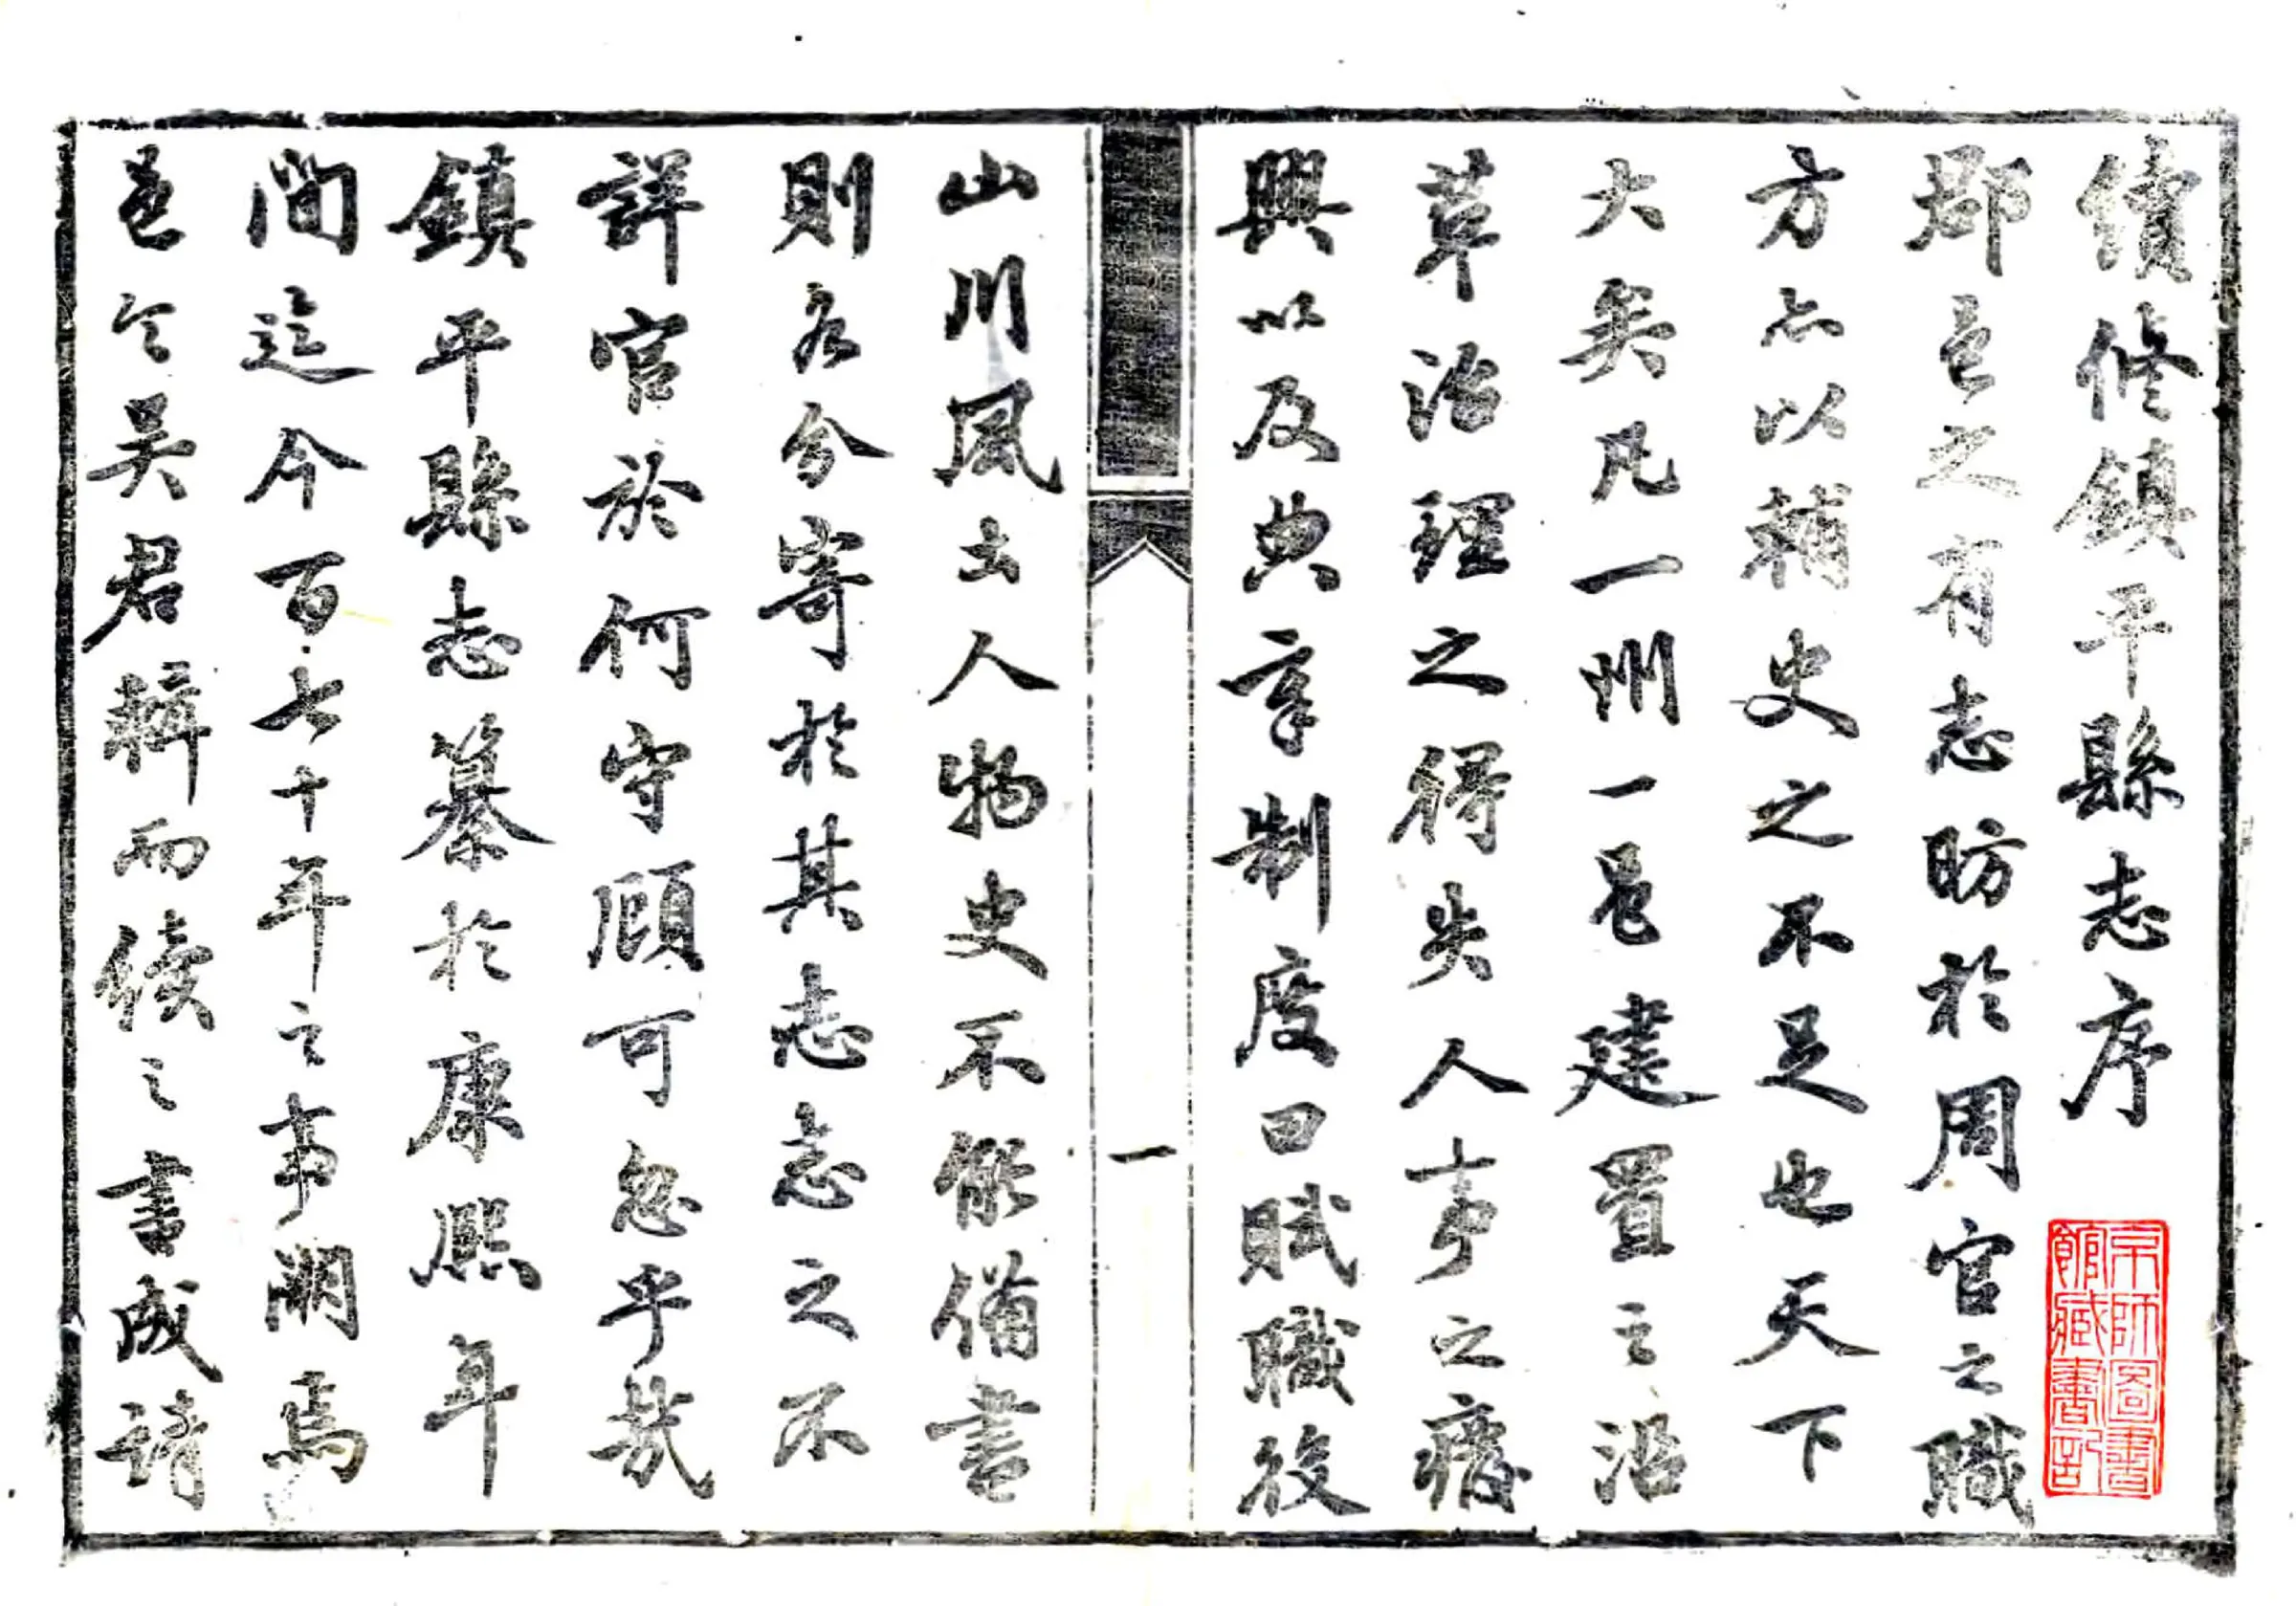 續修鎮平縣志序
郡邑之有志昉於周官之職
方亦以輔史之不足也天下
大矣凡一州一邑建置之沿
革治理之得失人事之廢
興以及典章制度田賦職役
一
山川風土人物史不能備書
則各分寄於其志志之不
詳官於何守顧可忽乎哉
鎮平縣志纂於康熙年
間迄今百七十年之事闕焉
邑令吳君輯而續之書成請
京師圖書
館藏書記